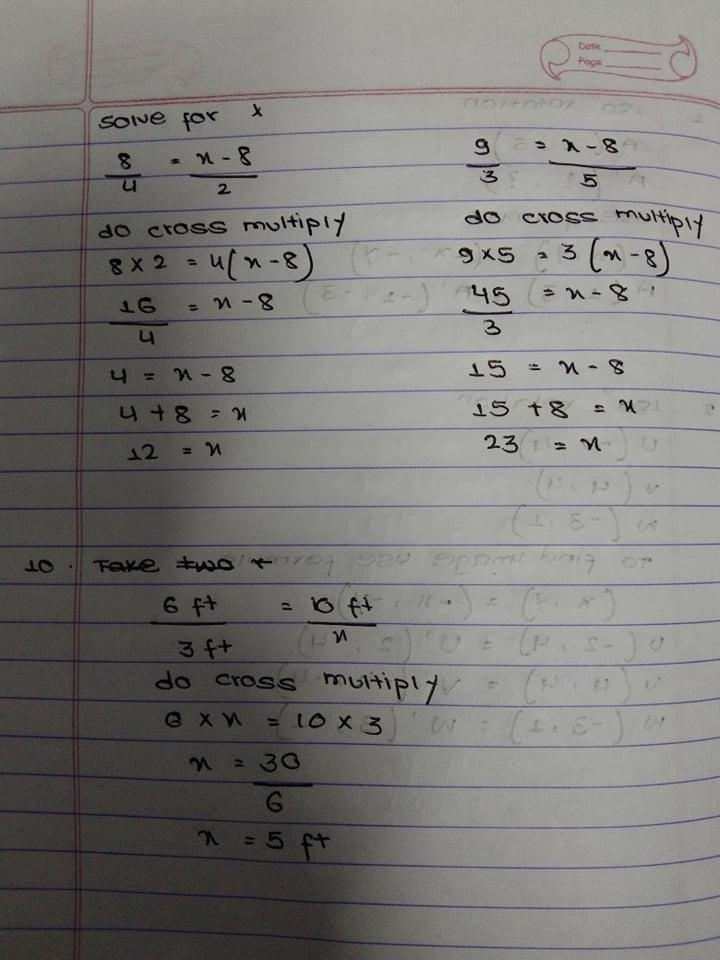 Date
Page
solve for x
8/4 = x - 8/2
do cross multiply
8 × 2 = 4(x - 8)
16/4 = x - 8
4 = x - 8
4 + 8 = x
12 = x
9/3 = x - 8/5
do cross multiply
9 × 5 = 3(x - 8)
45/3 = x - 8
15 = x - 8
15 + 8 = x
23 = x
10. Take two
6 ft/3 ft = 10 ft/x
do cross multiply
6 × x = 10 × 3
x = 30/6
x = 5 ft